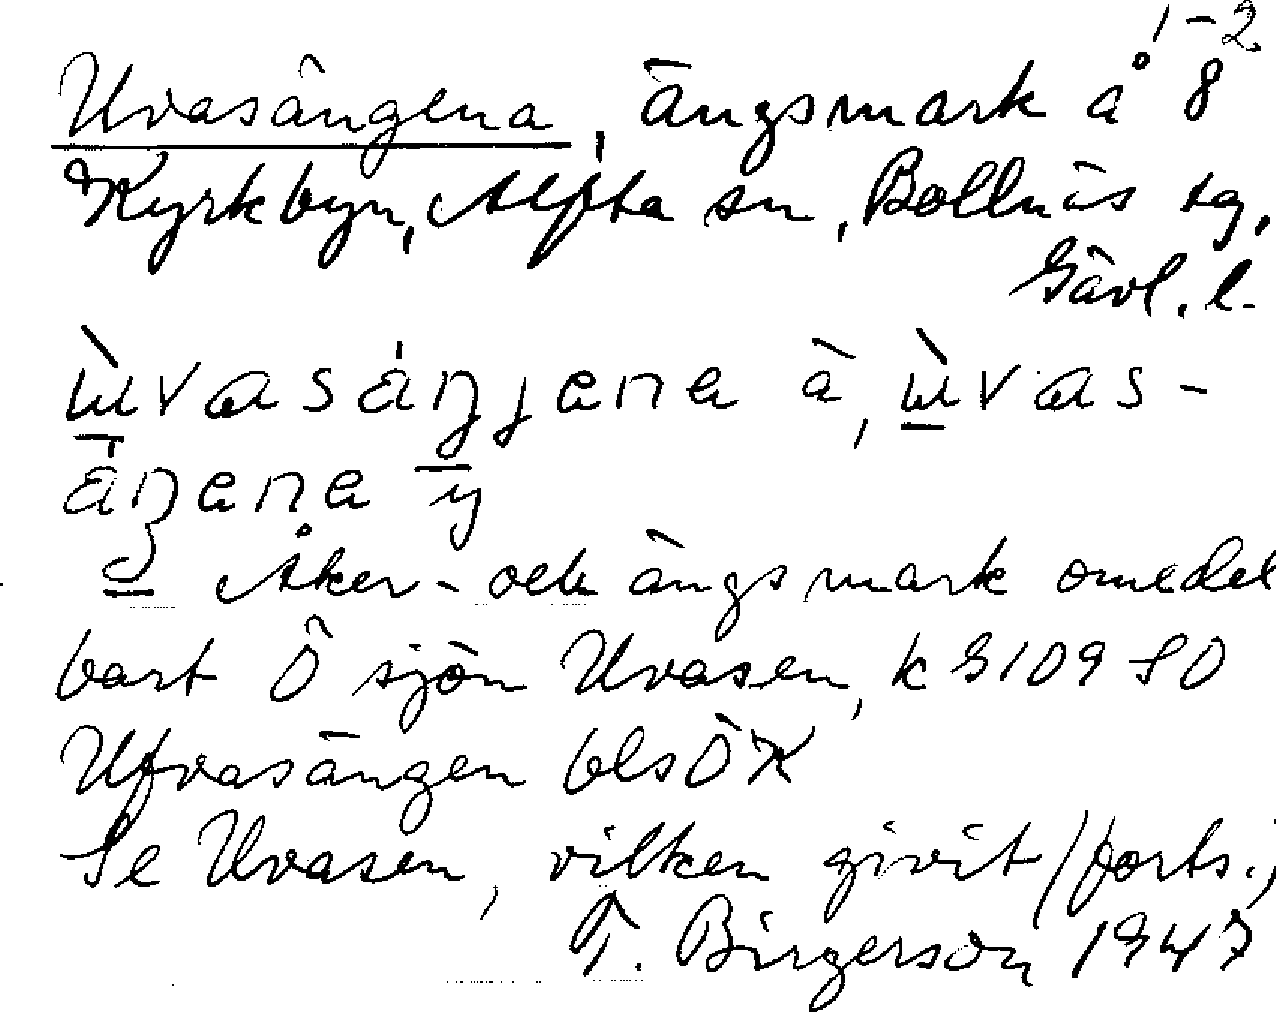 1-2
Uvasängena, ängsmark å 8
Kyrkbyn, Alfta sn, Bollnäs tg,
Gävl. l.
ɯ̀vasáŋjena à, ɯ̀vas-
áŋena y
Åker- och ängsmark omedel
bart Ö sjön Uvasen, k G109 SO
Ufvasängen bls ÖK
Se Uvasen, vilken givit /forts.,
T. Birgerson 1947